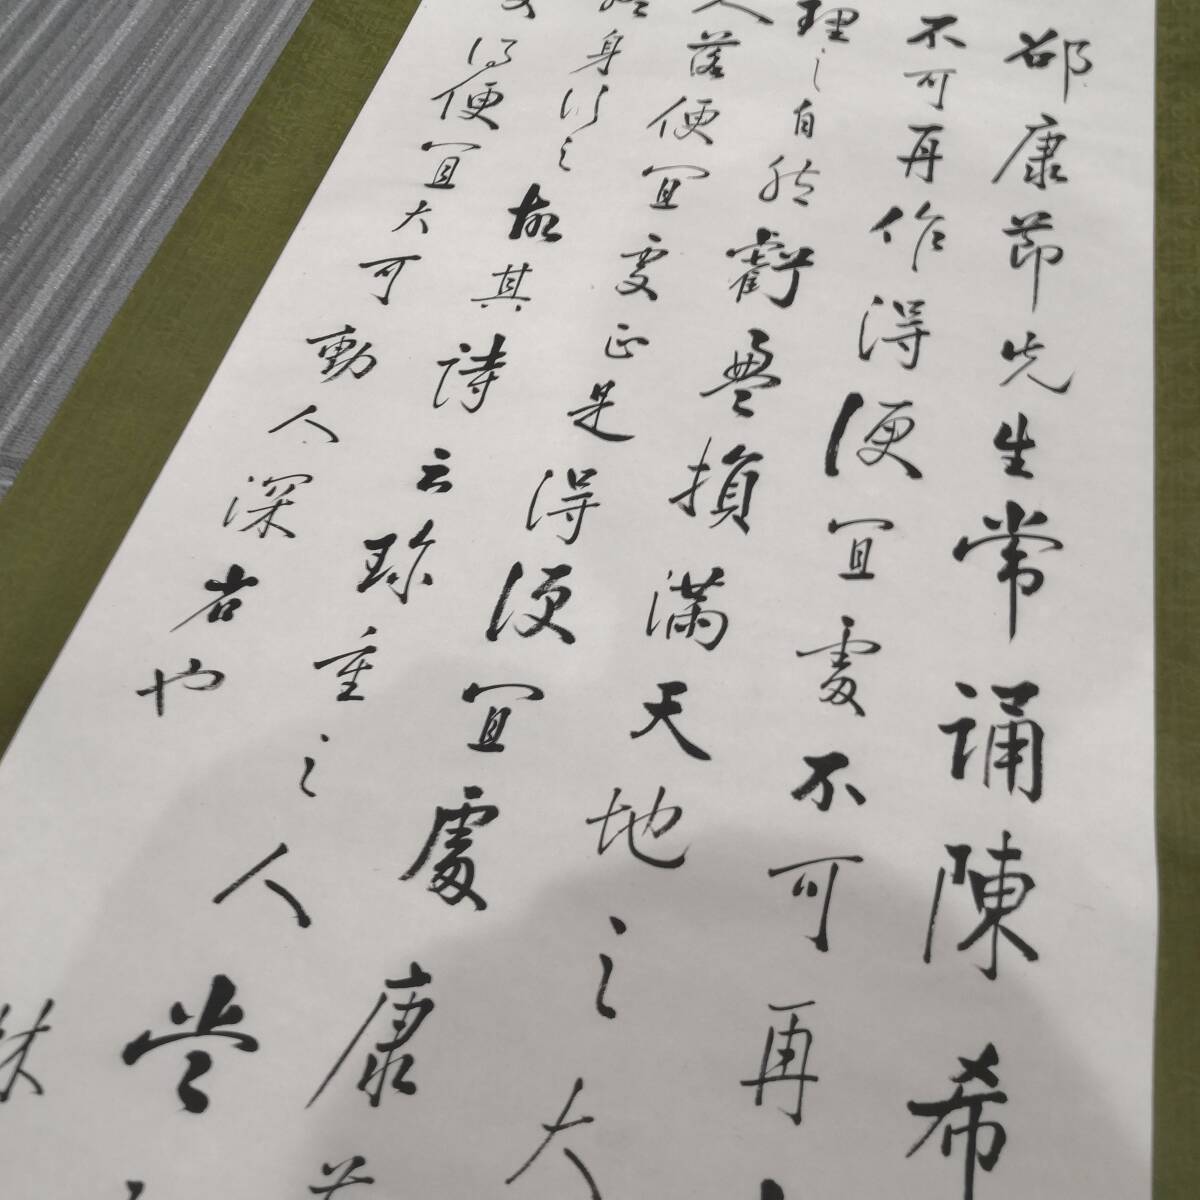 邵康節先生常誦陳希
不可再作得便宜處不可再
理之自然虧盈損滿天地之大
人落便宜處正是得便宜處康節
終身行之故其詩云珍重之人嘗
得便宜大可動人深省也